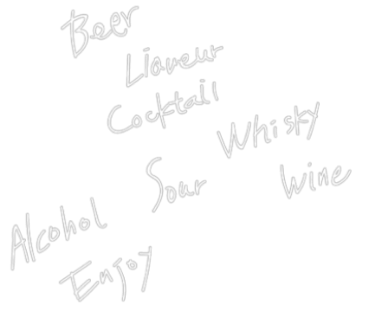 Beer
Liqueur
Cocktail
Whisky
Sour
Wine
Alcohol
Enjoy